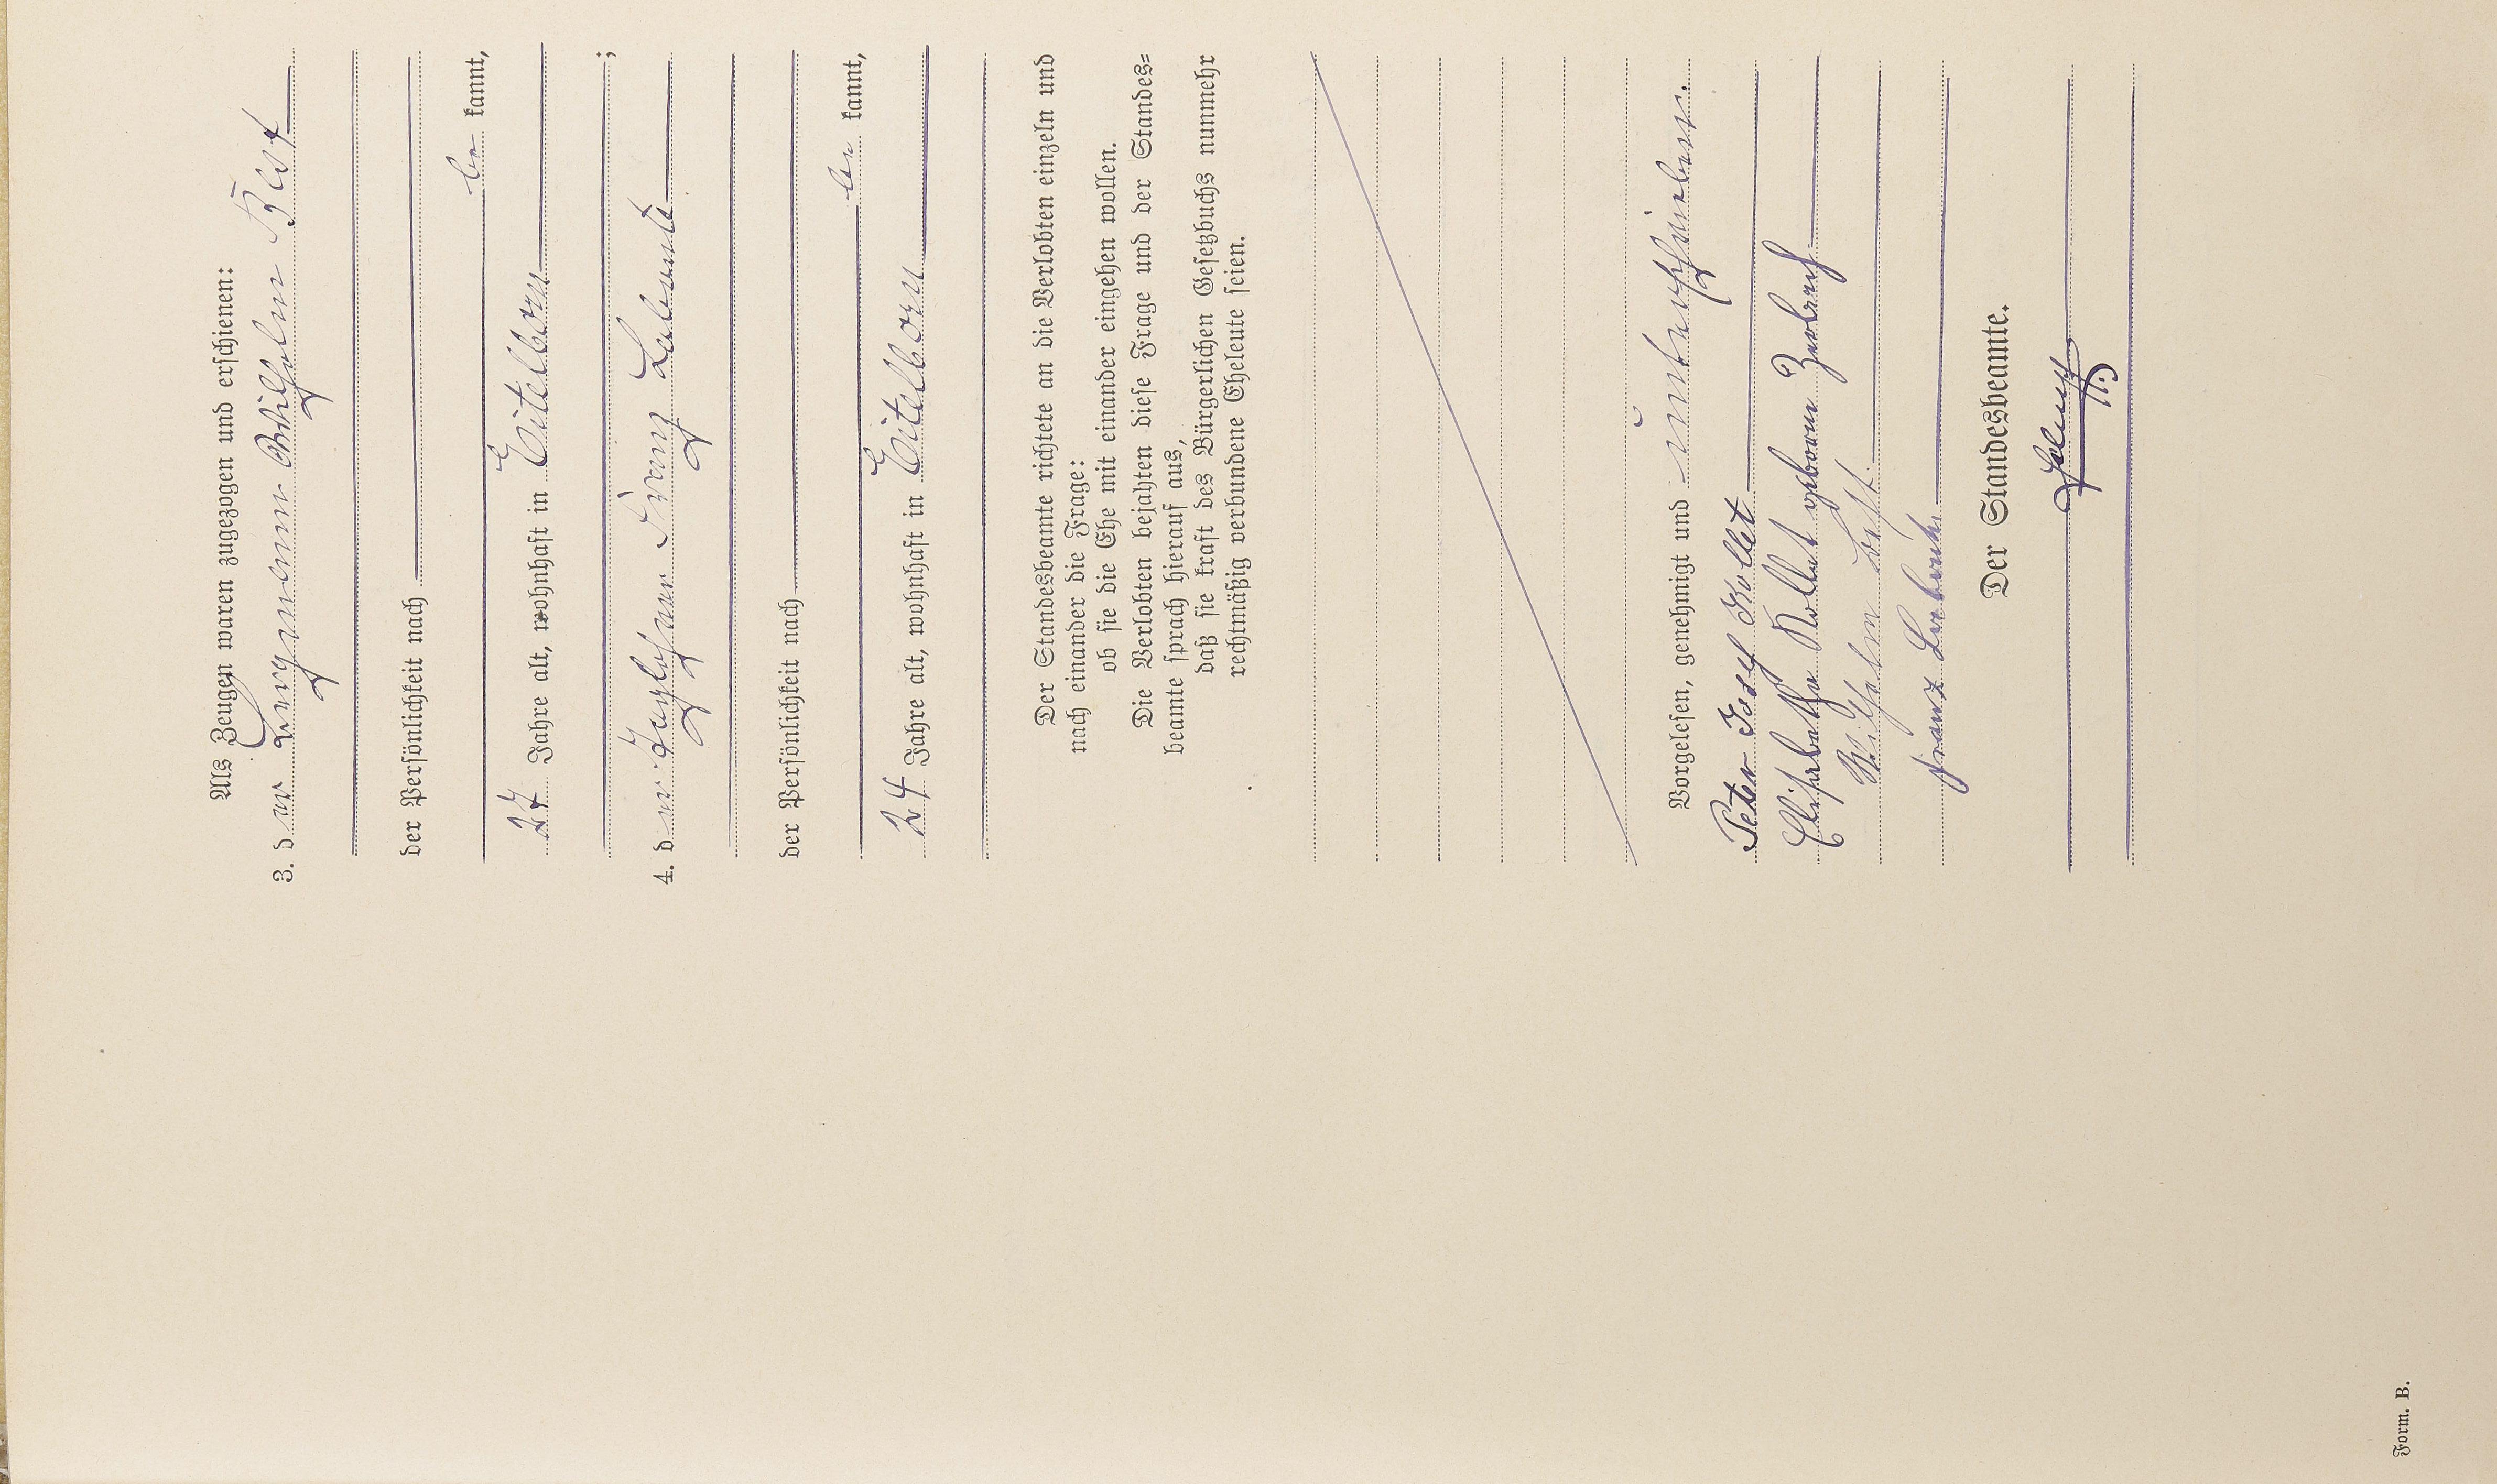 Als Zeugen waren zugezogen und erschienen:
3. der Bergmann Wilhelm Best
der Persönlichkeit nach
be kannt,
27 Jahre alt, wohnhaft in Eitelborn
;
4. der Taglöhner Franz
der Persönlichkeit nach
be kannt,
24 Jahre alt, wohnhaft in Eitelborn
Der Standesbeamte richtete an die Verlobten einzeln und
nach einander die Frage:
ob sie die Ehe mit einander eingehen wollen.
Die Verlobten bejahten diese Frage und der Standes=
beamte sprach hierauf aus,
daß sie kraft des Bürgerlichen Gesetzbuchs nunmehr
rechtmäßig verbundene Eheleute seien.
Vorgelesen, genehmigt und unterschrieben.
Peter Josef Kollet
Elisabetha Kollet geborne
Wilhelm Best.
Franz
Der Standesbeamte.
Form. B.